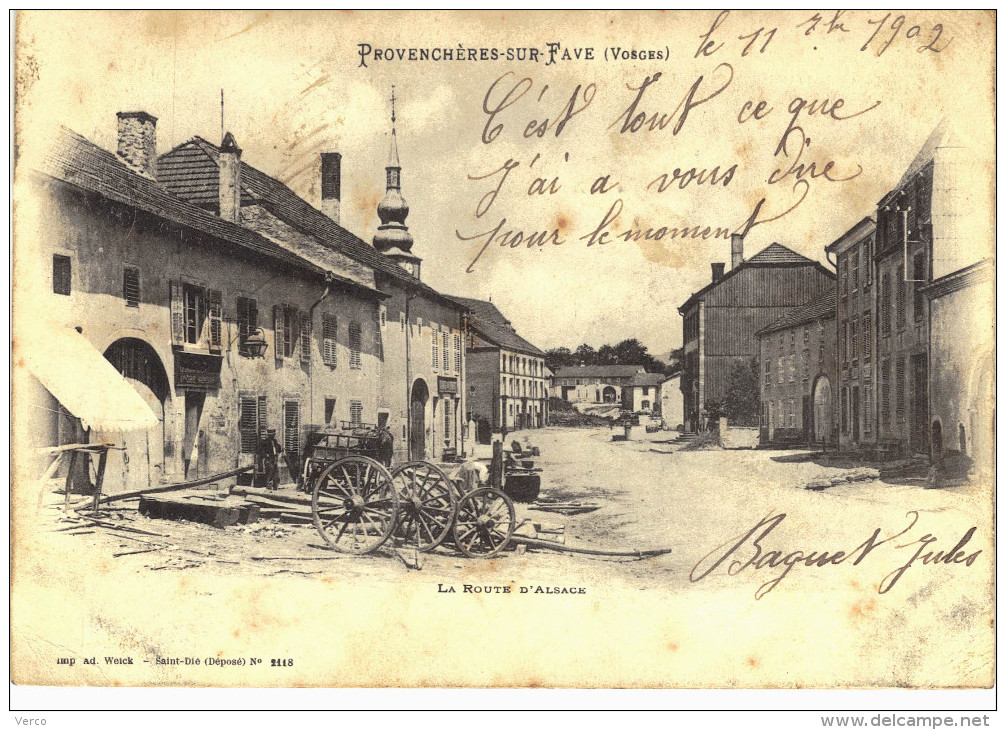 Provenchères-sur-Fave (Vosges)
le 11 7bre 1902
C'est tout ce que
J'ai a vous dire
pour le moment
Baguet Jules
La Route d'Alsace
Imp Ad. Weick - Saint-Dié (Déposé) No 2118
Verco
www.delcampe.net